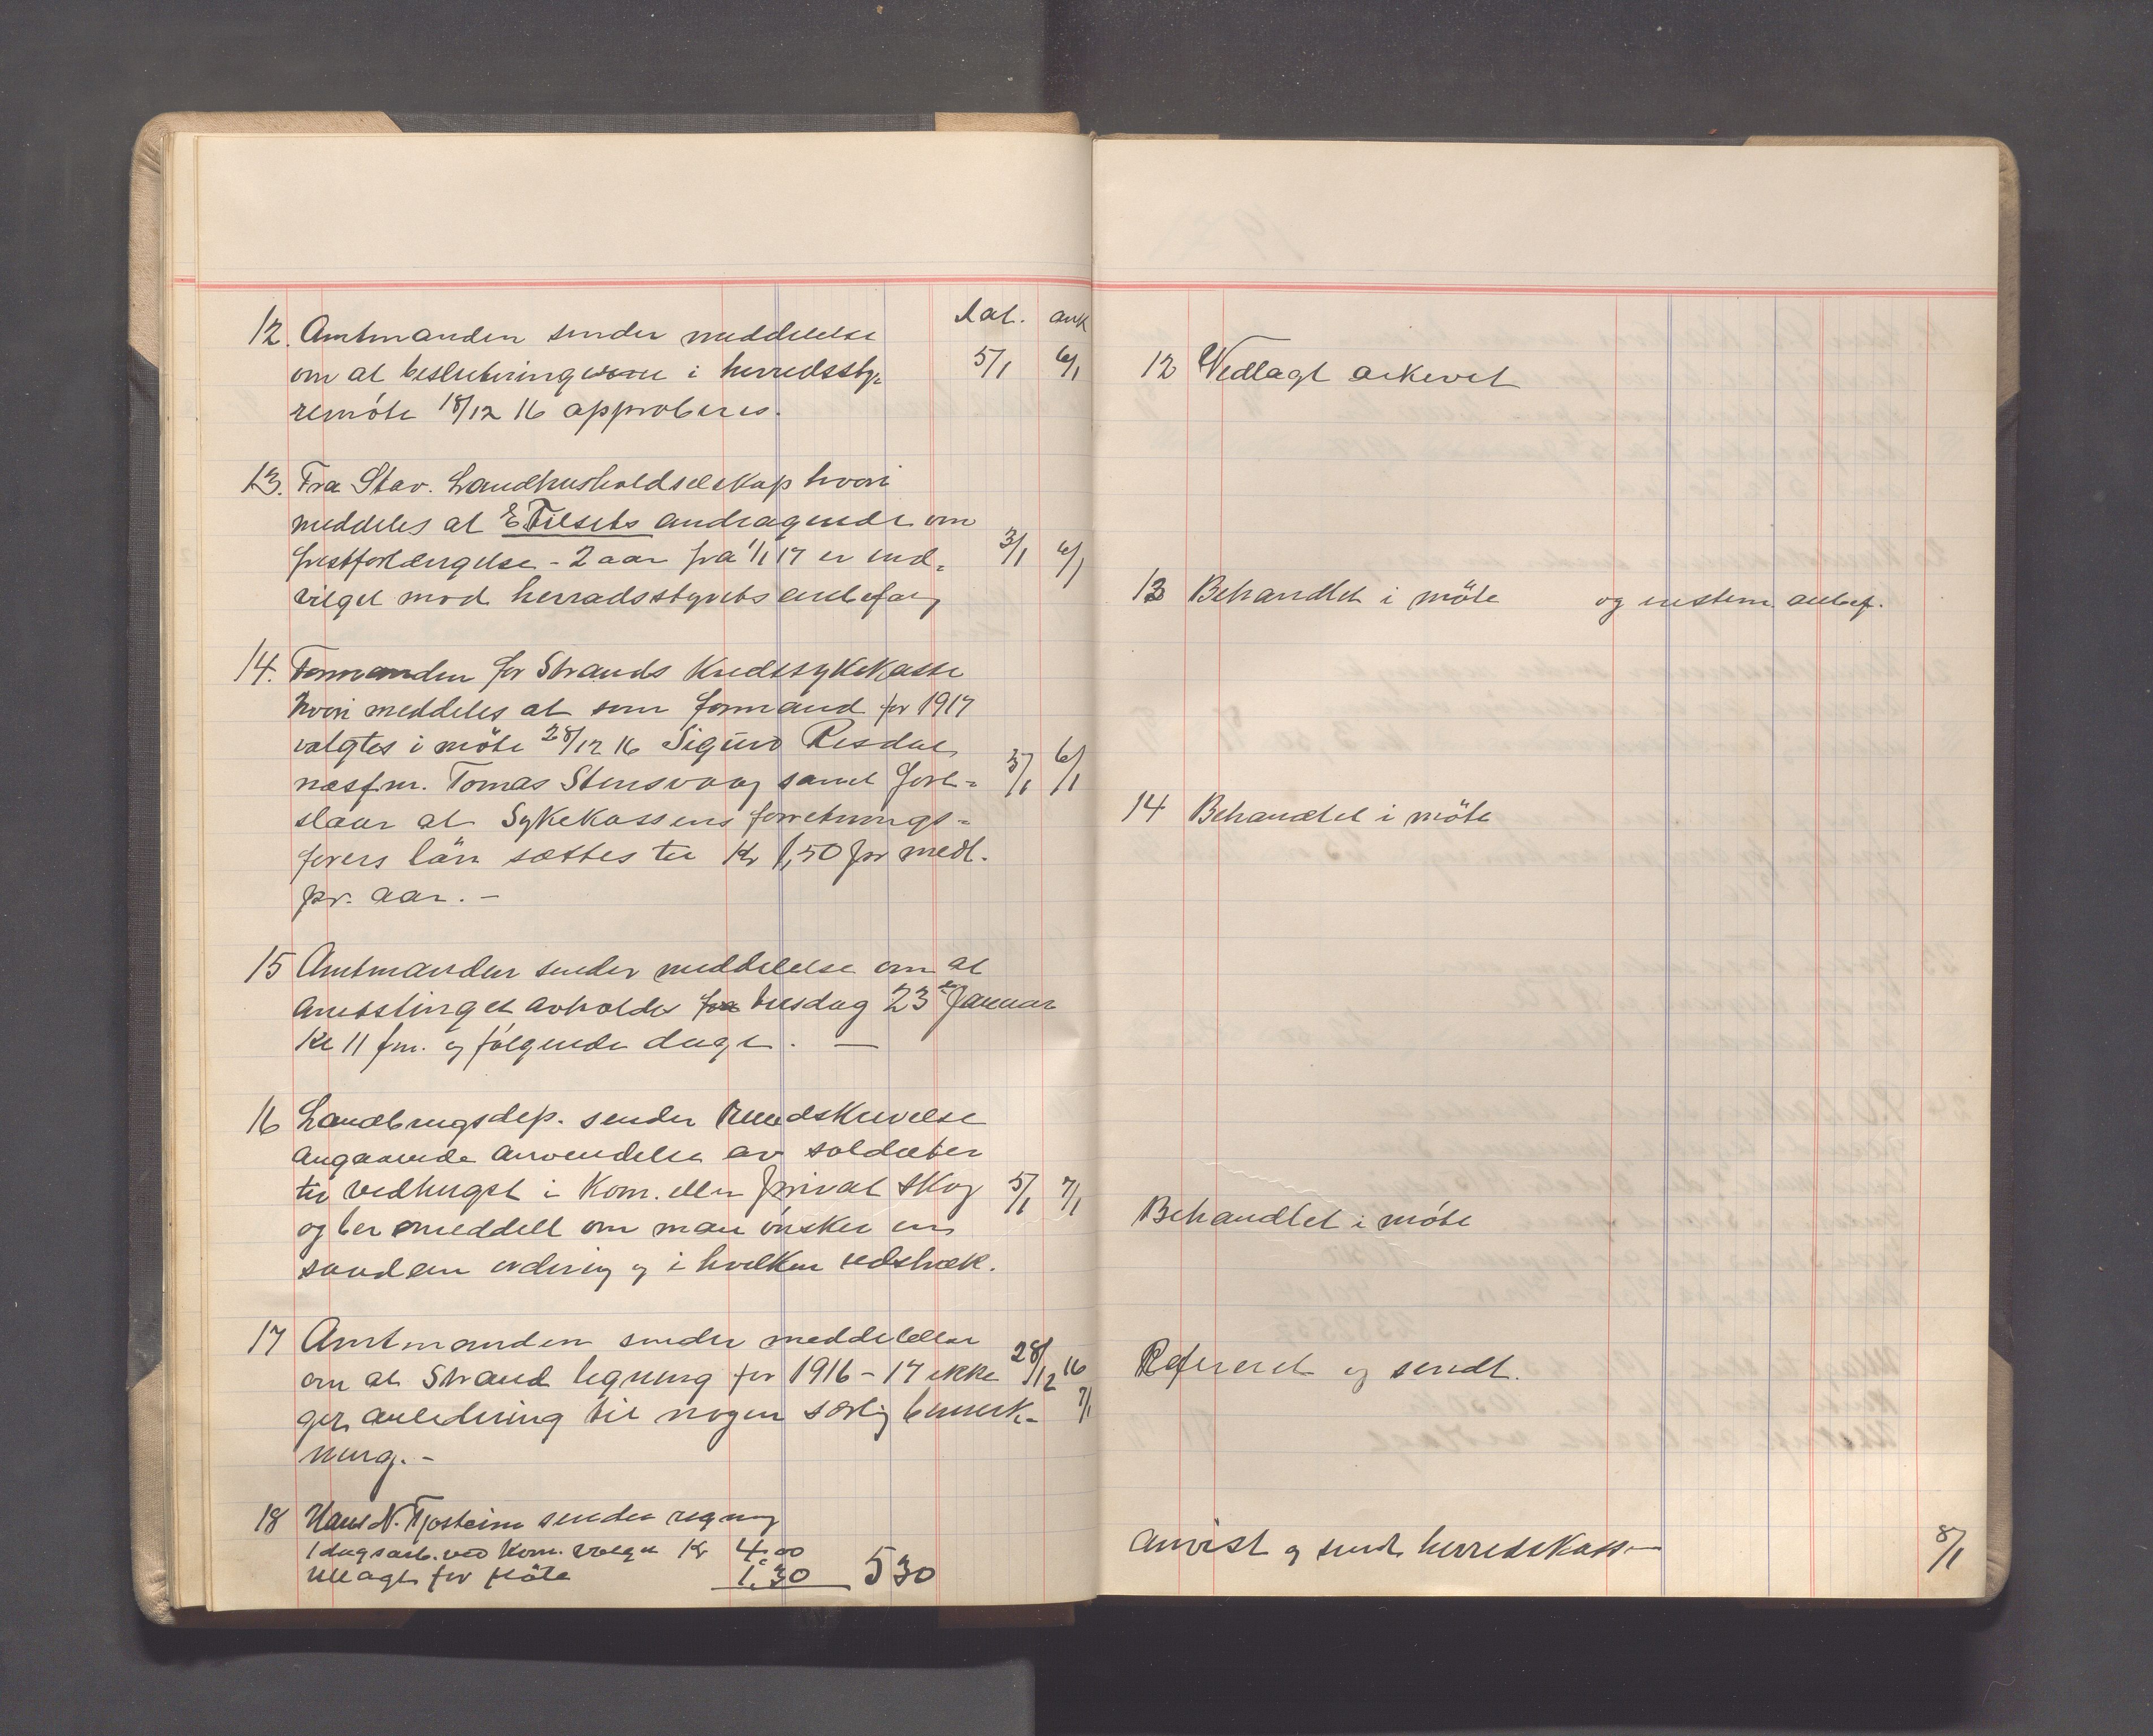 Dat. ank
12. Amtmanden sender meddelelse
om at beslutningerne i herredssty- 5/1 6/1
remöte 18/12 16 approberes.
13. Fra Stav. Landhusholdselskap hvori
meddeles at E Tilsets andragende om
fristforlængelse - 2 aar fra 1/1 17 er ind- 3/1 6/1
vilget mod herradsstyrets anbefaling
14. Formanden for Strands Kredssykekasse
hvori meddeles at som formand for 1917
valgtes i möte 28/12 16 Sigurd Risdal,
næstfm. Tomas Stensvaag samt fore- 3/1 6/1
slaar at Sykekassens forretnings-
førers lön sættes til Kr 1,50 pr medl.
pr. aar. -
15 Amtmanden sender meddelelse om at
amtstinget avholdes fra tirsdag 23de Januar
Kl 11 fm. og følgende dage. —
16 Landbrugsdep. sender Rundskrivelse
angaaende anvendelse av soldater
til vedhugst i Kom. eller privat skog 5/1 7/1
og ber meddelt om man ønsker en
saadan ordning og i hvilken utstræk.
17 Amtmanden sender meddelelse
om at Strand ligning for 1916-17 ikke 28/12 16
gir anledning til nogen særlig bemerk- 7/1
ning. -
18 Hans N. Tjostheim sender regning
1 dagsarb. ved Kom. valget Kr 4.00
Utlagt for 1.30 530
12 Vedlagt arkivet
13 Behandlet i möte og anbef.
14 Behandlet i möte
Behandlet i möte
Referert og sendt.
Anvist og sendt herredskass- 8/1